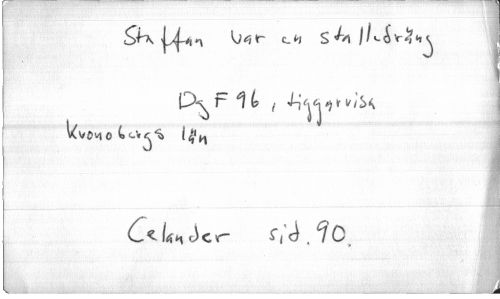 Staffan var en stalledräng
Dg F 96, tiggarvisa
Kronobergs län
Celander sid. 90.